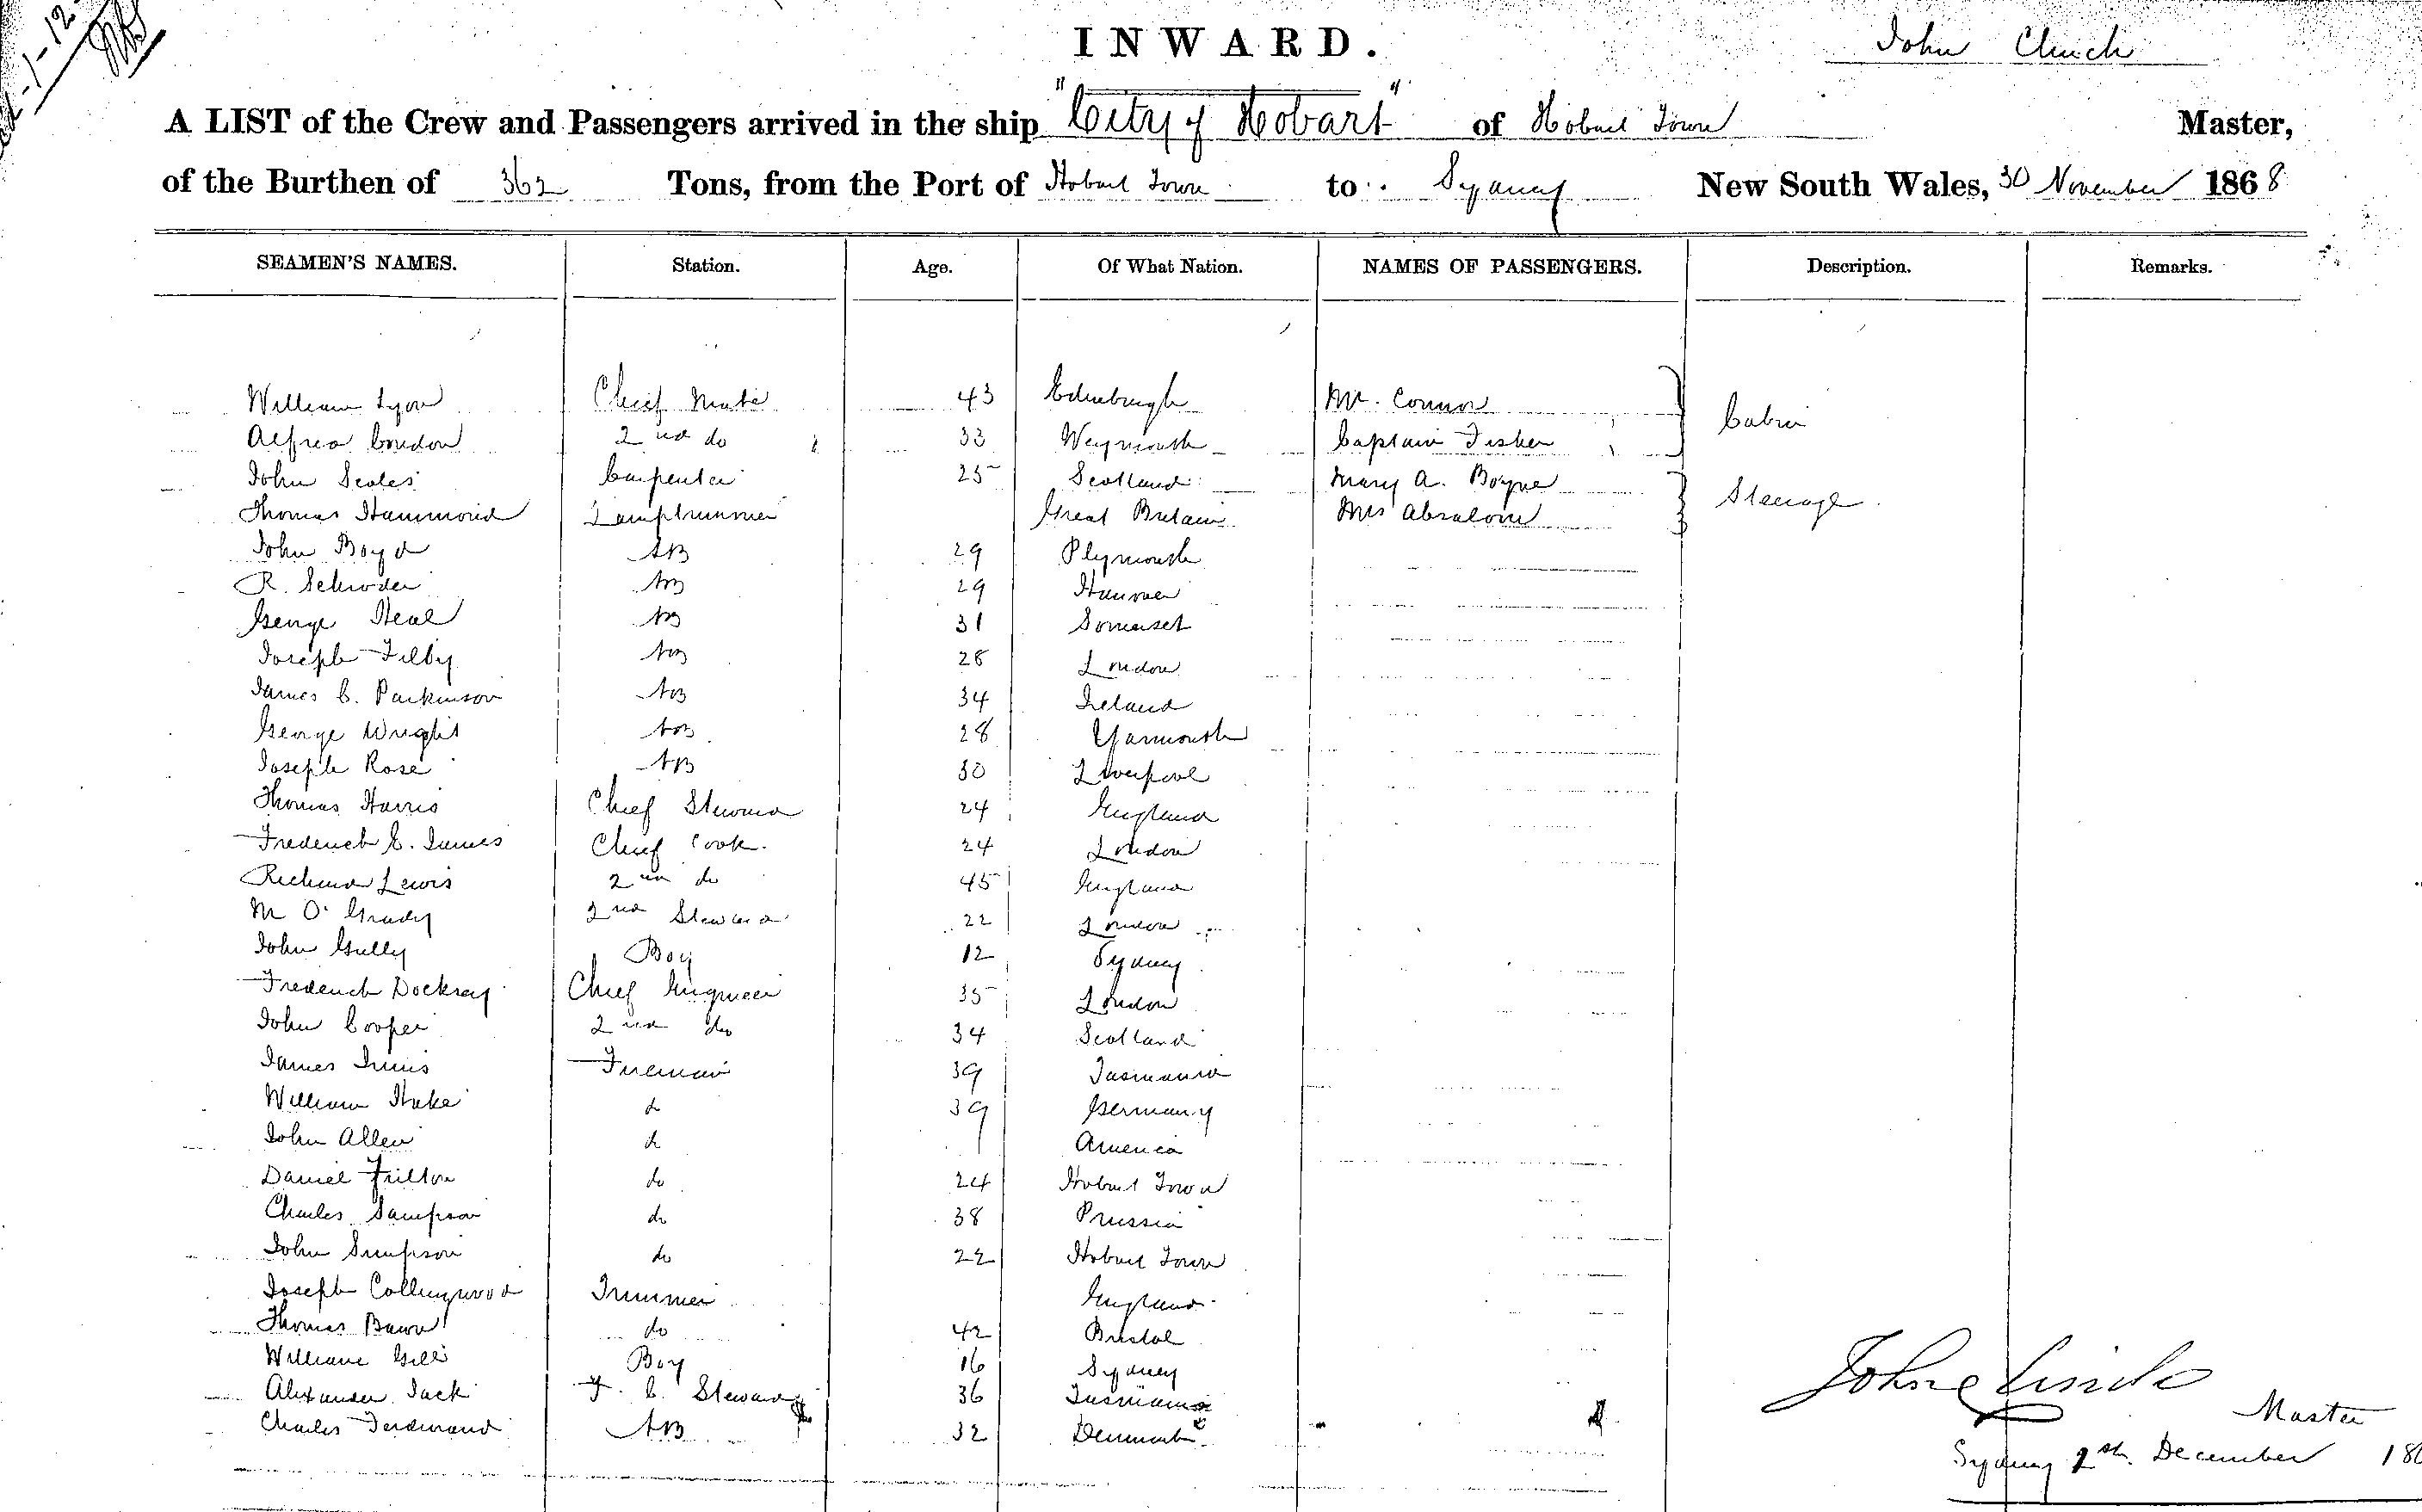 INWARD.
John Clinch
A LIST of the Crew and Passengers arrived in the ship "City of Hobart" of Hobart Town Master,
of the Burthen of 362 Tons, from the Port of Hobart Town to Sydney New South Wales, 30 November 1868
SEAMEN'S NAMES. Station. Age. Of What Nation. NAMES OF PASSENGERS. Description. Remarks.
William Lyon Chief Mate 43 Edinburgh Mr. Connor Cabin
Alfred Condon 2nd do 33 Weymouth Captain Fisher
John Scales Carpenter 25 Scotland Mary A. Boyne Steerage
Thomas Hammond Lamptrimmer Great Britain Mrs Absalom
John Boyd AB 29 Plymouth
R. Schroder AB 29 Hanover
George Neal AB 31 Somerset
Joseph Filby AB 28 London
James C. Parkinson AB 34 Ireland
George Wright AB 28 Yarmouth
Joseph Rose AB 30 Liverpool
Thomas Harris Chief Steward 24 England
Frederick E. James Chief Cook. 24 London
Richard Lewis 2nd do 45 England
M O'Grady 2nd Steward 22 London
John Gully Boy 12 Sydney
Frederick Dockray Chief Engineer 35 London
John Cooper 2nd do 34 Scotland
James Innis Fireman 39 Tasmania
William Hake do 39 Germany
John Allen do America
Daniel Fritton do 24 Hobart Town
Charles Sampson do 38 Prussia
John Simpson do 22 Hobart Town
Joseph Collingwood Trimmer England
Thomas Bawn do 42 Bristol
William Gill Boy 16 Sydney
Alexander Jack F. C. Steward 36 Tasmania
Charles Ferdinand AB 32 Denmark
John Clinch
Master
Sydney December 186